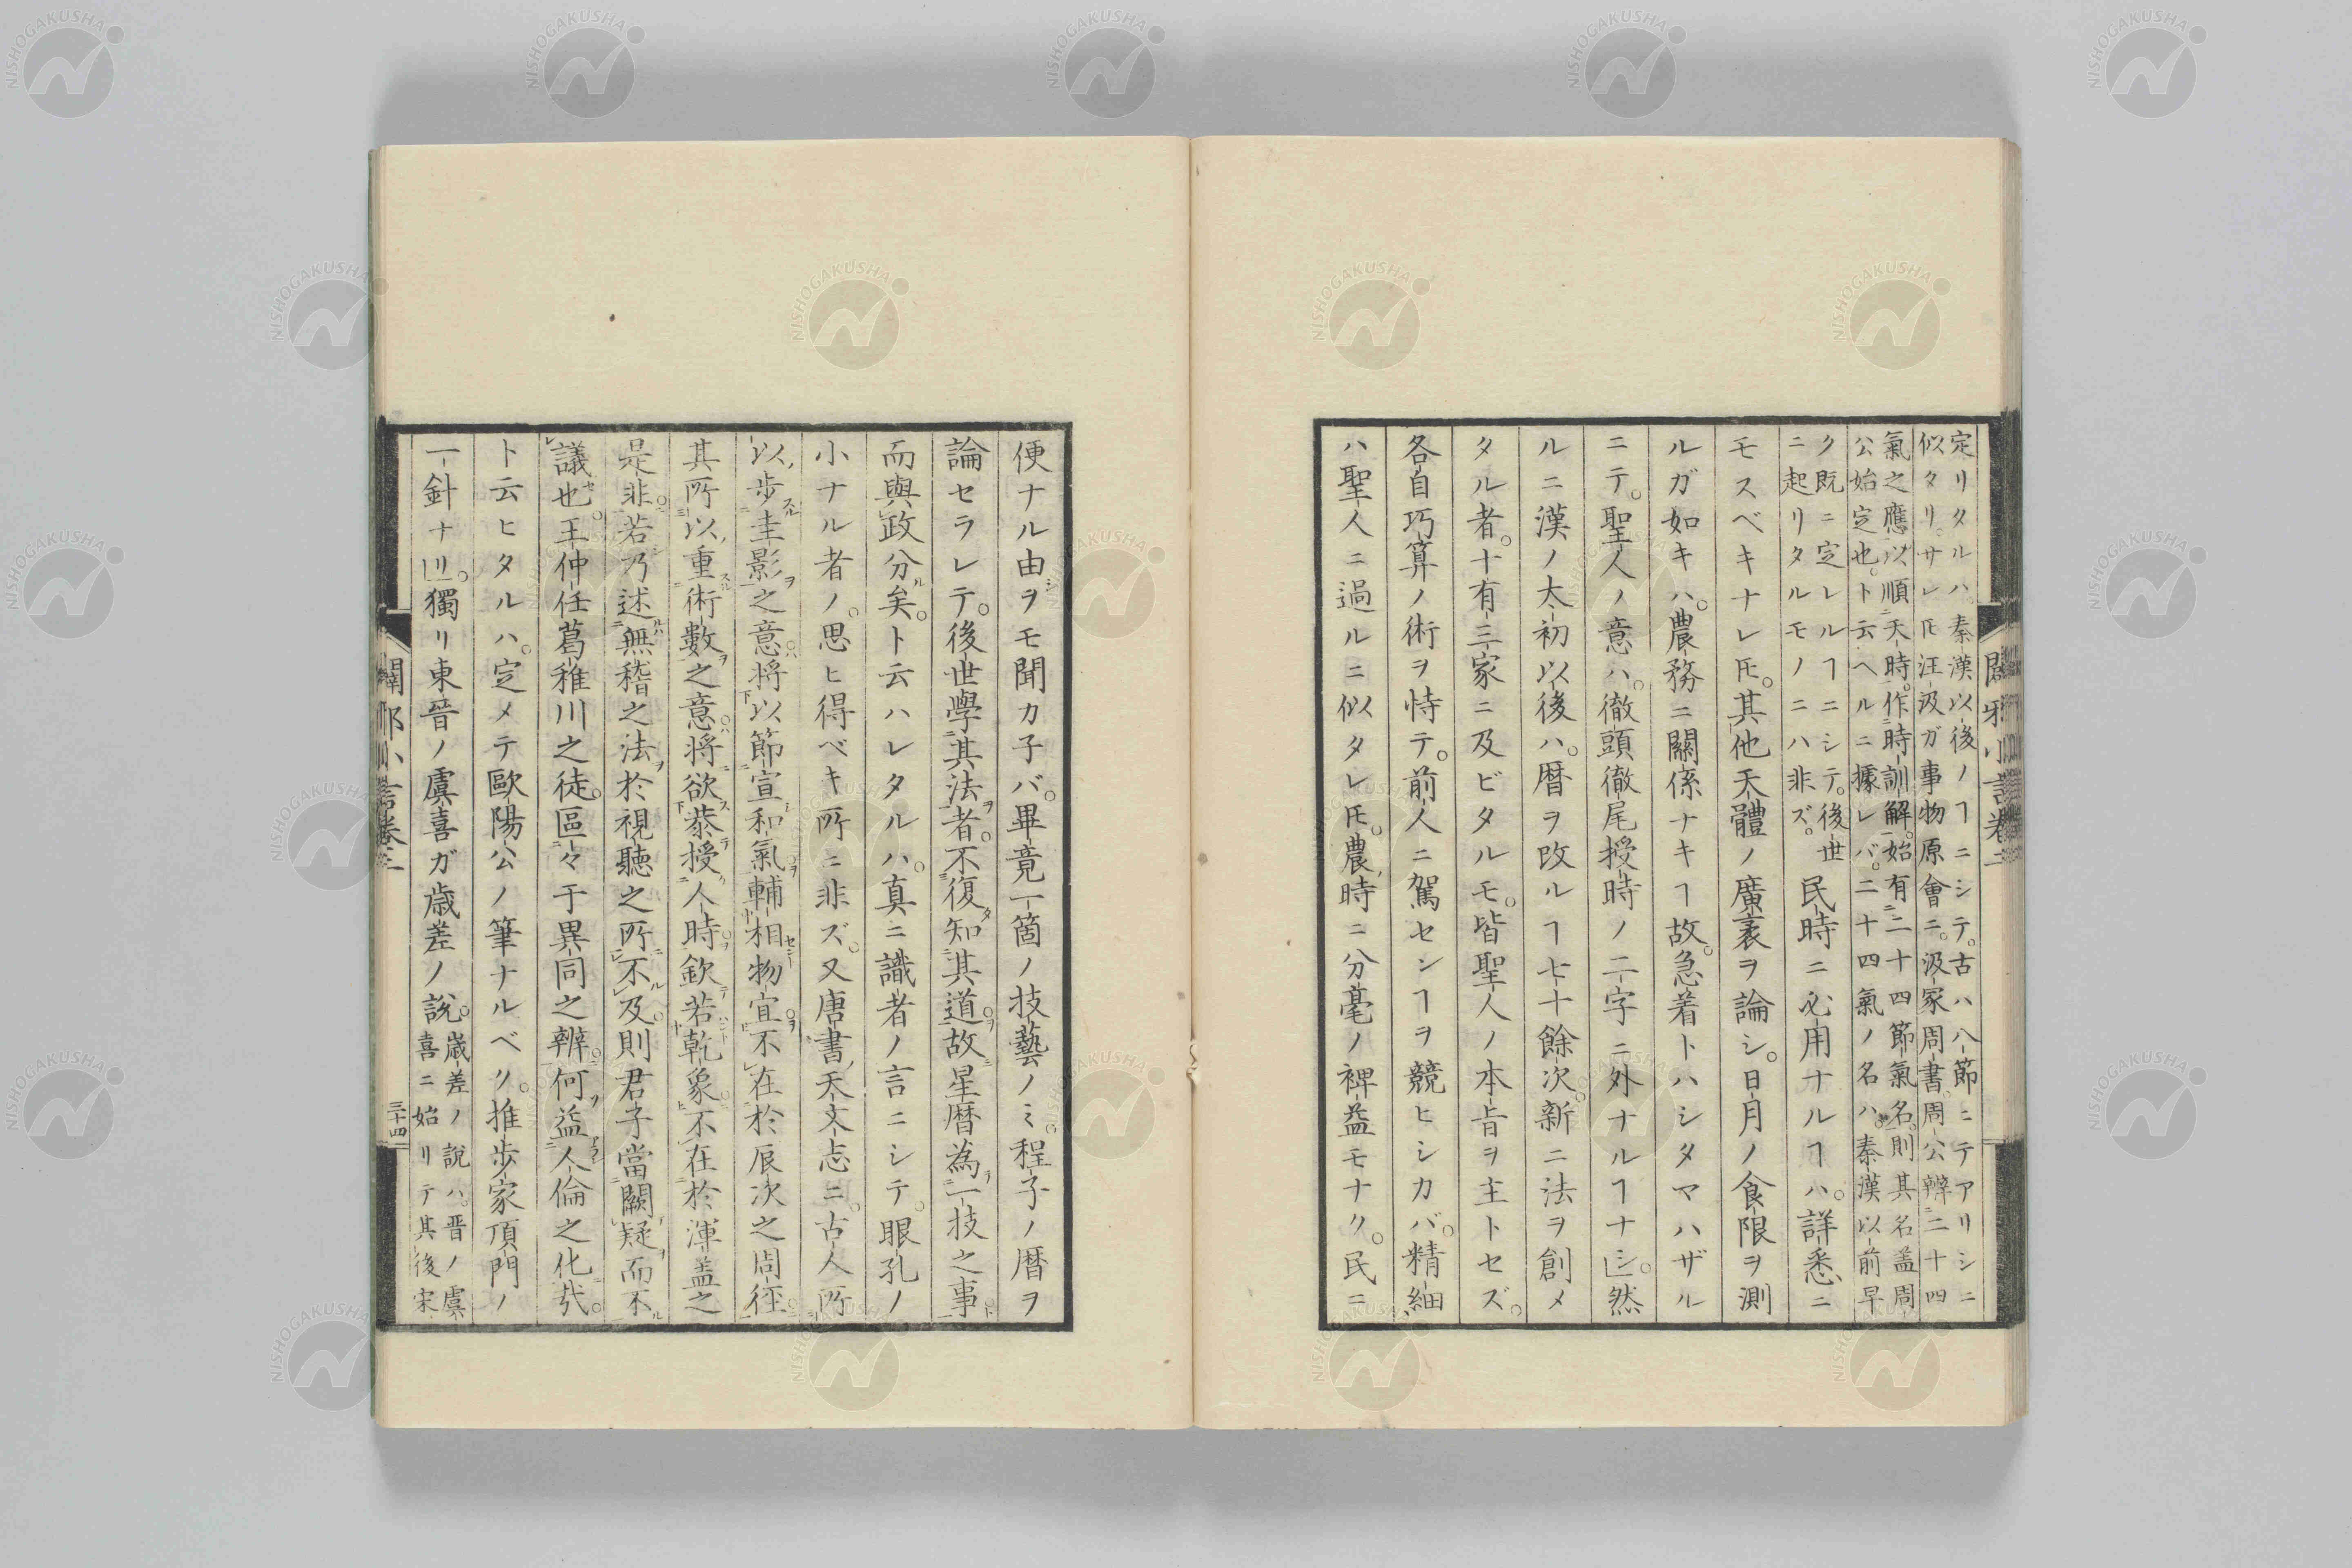 定リタルハ。秦漢以後ノヿニシテ。古ハ八節ニテアリシニ
似タリ。サレ𪜈汪汲ガ事物原會ニ。汲冢周書。周公辨二十四
氣之應以順天時。作時訓解。始有二十四節氣名。則其名盖周
公始定也。ト云ヘルニ據レバ。二十四氣ノ名ハ。秦漢以前早
ク既ニ定レルヿニシテ。後世
ニ起リタルモノニハ非ズ。
民時ニ必用ナルヿハ。詳悉ニ
モスベキナレ𪜈。其他天體ノ廣袤ヲ論シ。日月ノ食限ヲ測
ルガ如キハ。農務ニ關係ナキヿ故。急着トハシタマハザル
ニテ。聖人ノ意ハ。徹頭徹尾授時ノ二字ニ外ナルヿナシ。然
ルニ漢ノ太初以後ハ。暦ヲ改ルヿ七十餘次。新ニ法ヲ創メ
タル者。十有三家ニ及ビタルモ。皆聖人ノ本旨ヲ主トセズ。
各自巧算ノ術ヲ恃テ。前人ニ駕センヿヲ競ヒシカバ。精細
ハ聖人ニ過ルニ似タレ𪜈。農時ニ分毫ノ裨益モナク。民ニ
闢邪小言卷二
便ナル由ヲモ聞カ子バ。畢竟一箇ノ技藝ノミ。程子ノ暦ヲ
論セラレテ。後世學其法者。不復知其道。故星暦為一技之事
而與政分矣。ト云ハレタルハ。真ニ識者ノ言ニシテ。眼孔ノ
小ナル者ノ。思ヒ得ベキ所ニ非ズ。又唐書天文志ニ。古人所
以步圭影之意。將以節宣和氣。輔相物宜。不在於辰次之周徑。
其所以重術數之意。將欲恭授人時。欽若乾象。不在於渾盖之
是非。若乃述無稽之法於視聽之所不及。則君子當闕疑而不
議也。王仲任葛稚川之徒。區々于異同之辨。何益人倫之化哉。
ト云ヒタルハ。定メテ歐陽公ノ筆ナルベク。推步家頂門ノ
一針ナリ。獨リ東晉ノ虞喜ガ歳差ノ說。
歳差ノ說ハ。晋ノ虞
喜ニ始リテ其後宋
闢邪小言卷二
三十四
NISHOGAKUSHA